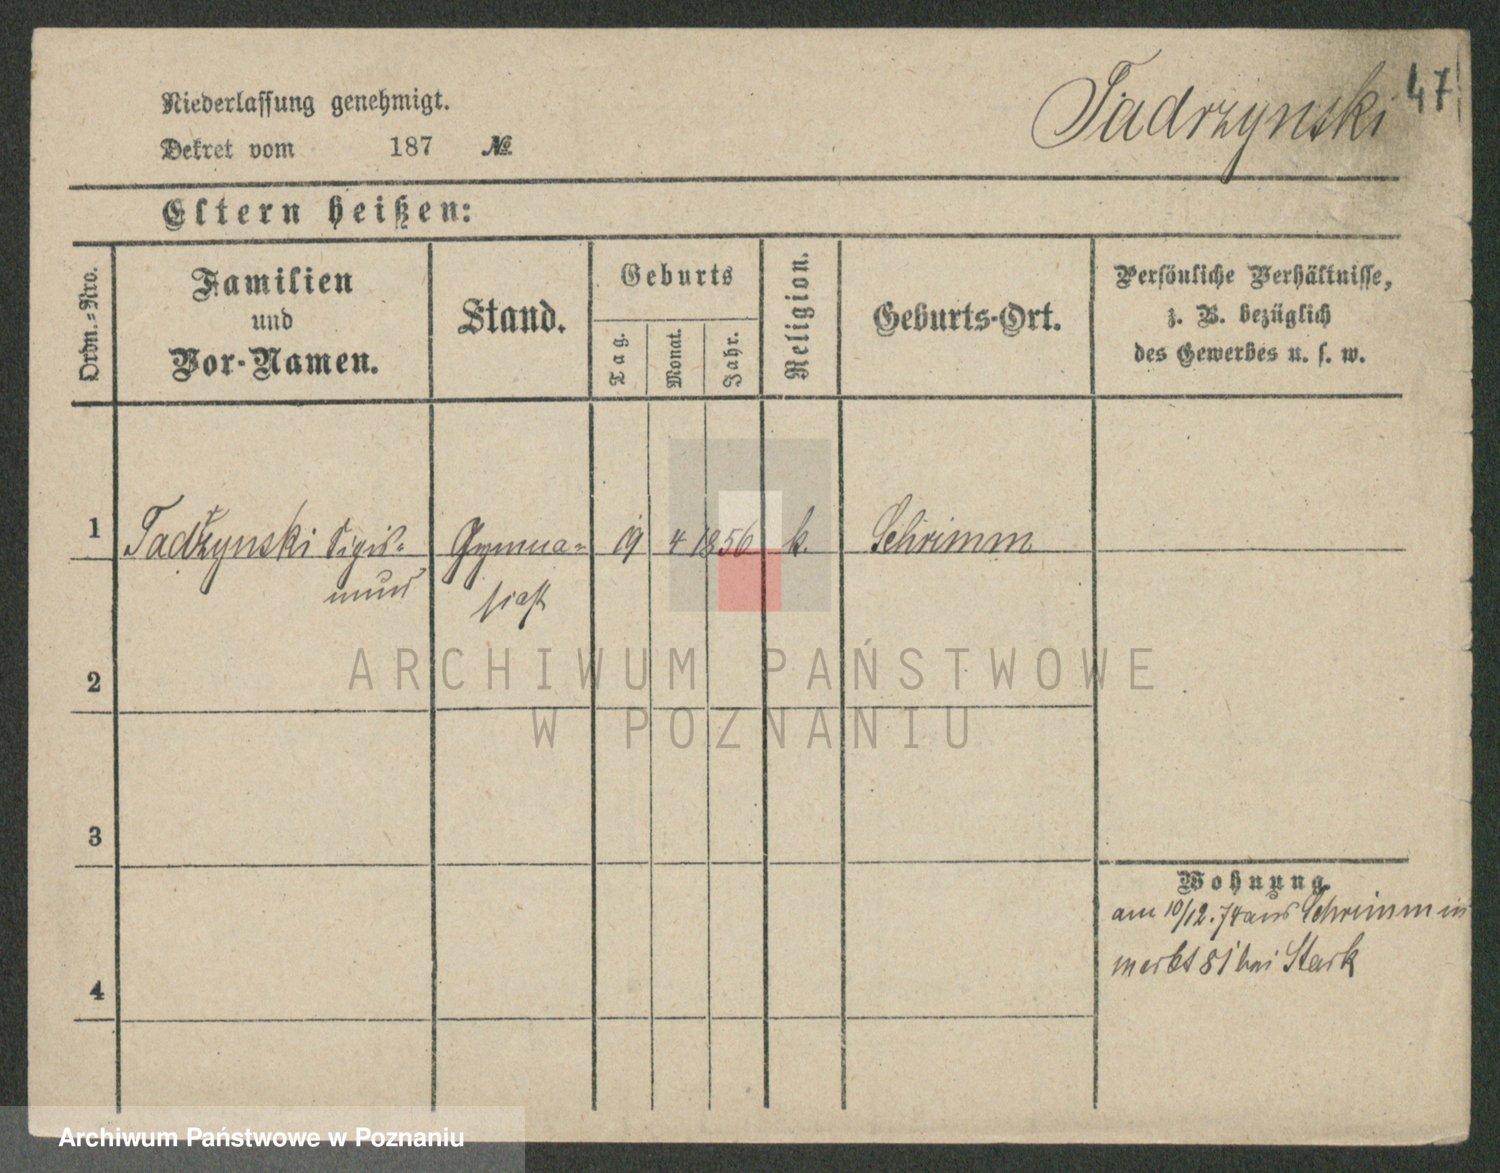 47
Tadrzynski
Niederlassung genehmigt.
Dekret vom 187 №
Eltern heißen:
Ordn.-Nro.
Familien
und
Vor-Namen.
Stand.
Geburts
Tag.
Monat.
Jahr.
Religion.
Geburts-Ort.
Persönliche Verhältnisse,
z. B. bezüglich
des Gewerbes u. s. w.
1 Tadrzynski Sigis- Gymna- 19 4 1856 k. Schrimm
mund siast
2
3
4
Wohnung.
am 10/12.74 aus Schrimm in
markt 81 bei Stark
ARCHIWUM PAŃSTWOWE
W POZNANIU
Archiwum Państwowe w Poznaniu